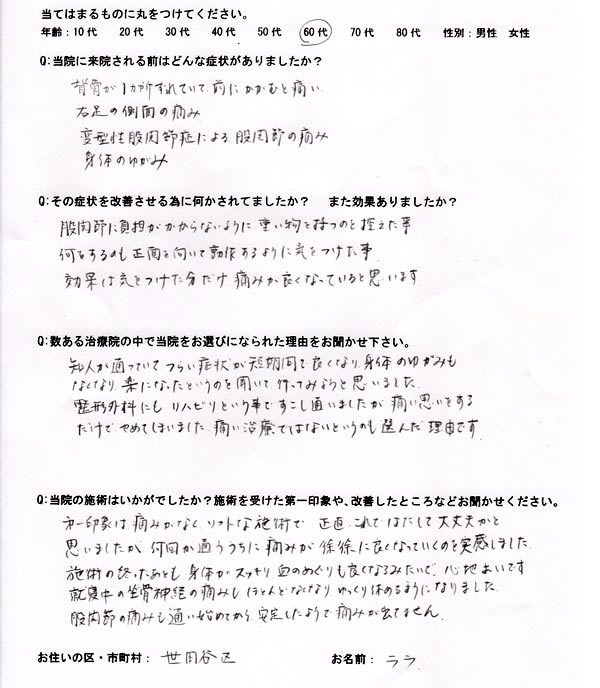 当てはまるものに丸をつけてください。
年齢：10代 20代 30代 40代 50代 60代 70代 80代 性別：男性 女性
Q:当院に来院される前はどんな症状がありましたか？
背骨が1カ所ずれていて、前にかがむと痛い
右足の側面の痛み
変型性股関節症による、股関節の痛み
身体のゆがみ
Q:その症状を改善させる為に何かされてましたか？ また効果ありましたか？
股関節に負担がかからないように重い物を持つのを控えた事
何をするのも正面を向いて動作するように気をつけた事
効果は気をつけた分だけ、痛みが良くなっていると思います
Q:数ある治療院の中で当院をお選びになられた理由をお聞かせ下さい。
知人が通っていてつらい症状が短期間で良くなり、身体のゆがみも
なくなり、楽になったというのを聞いて行ってみようと思いました。
整形外科にもリハビリという事ですこし通いましたが痛い思いをする
だけでやめてしまいました。痛い治療ではないというのも選んだ理由です。
Q:当院の施術はいかがでしたか？施術を受けた第一印象や、改善したところなどお聞かせください。
第一印象は痛みがなく、ソフトな施術で 正直、これではたして大丈夫かと
思いましたが、何回か通ううちに痛みが徐徐に良くなっていくのを実感しました。
施術の終ったあとも身体がスッキリ血のめぐりも良くなるみたいで、心地よいです
就寝中の坐骨神経の痛みもほとんどなくなり、ゆっくり休めるようになりました。
股関節の痛みも通い始めてから安定したようで痛みが出てません。
お住いの区・市町村： 世田谷区 お名前： ララ